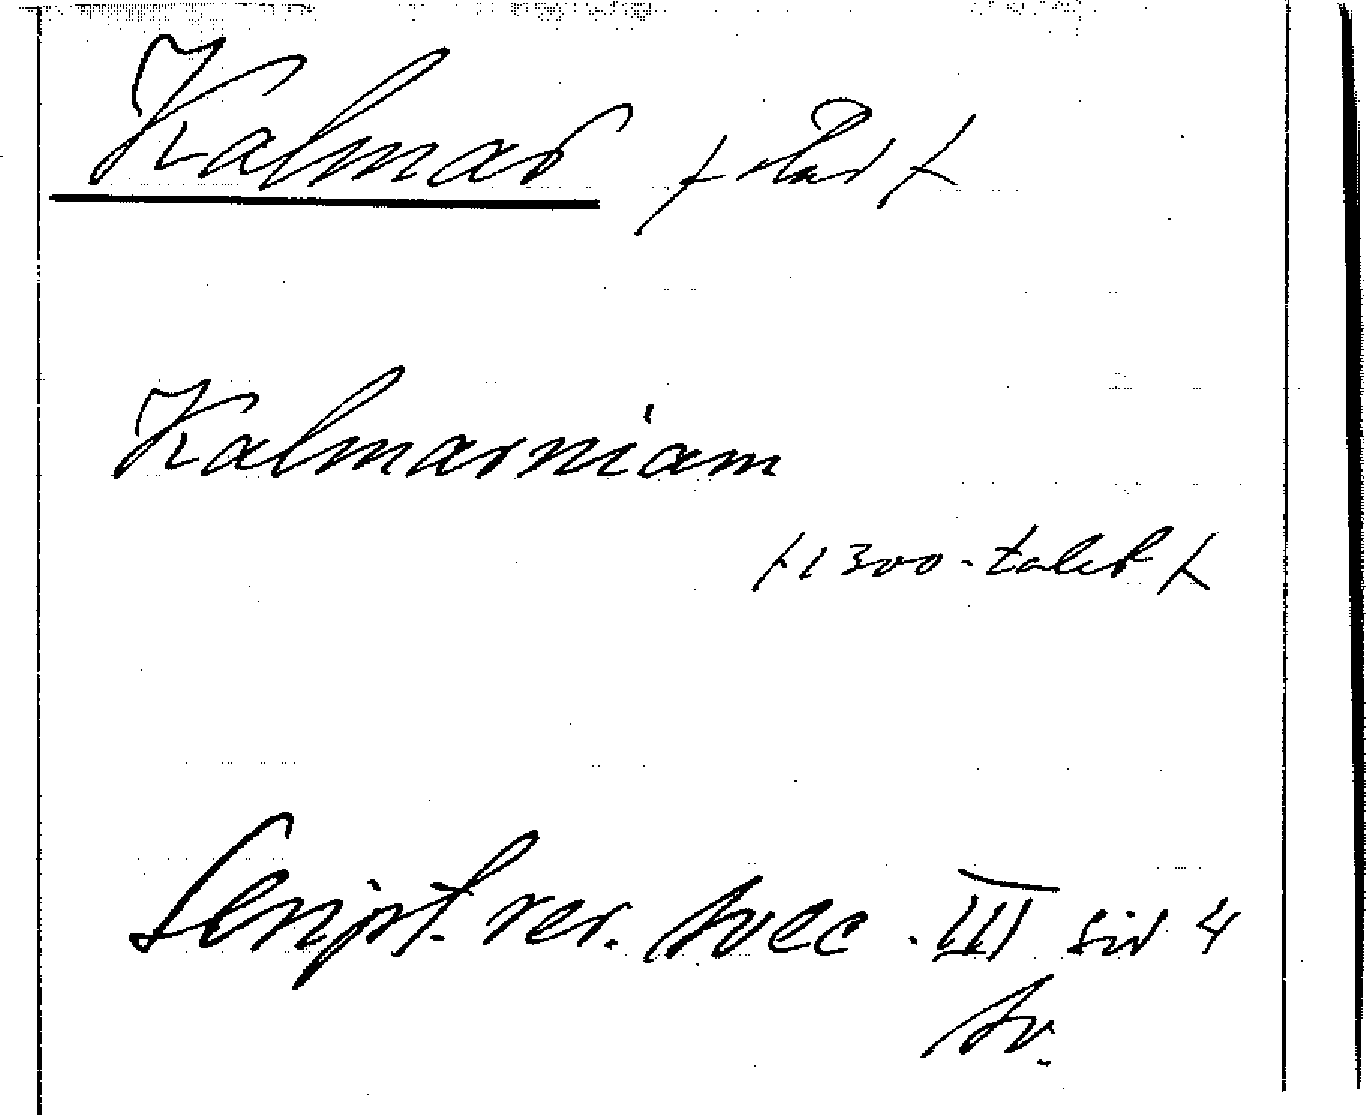 Kalmar /stad/
Kalmarniam
/1300-talet/
Script. rer. svec. III sid 4
sv.